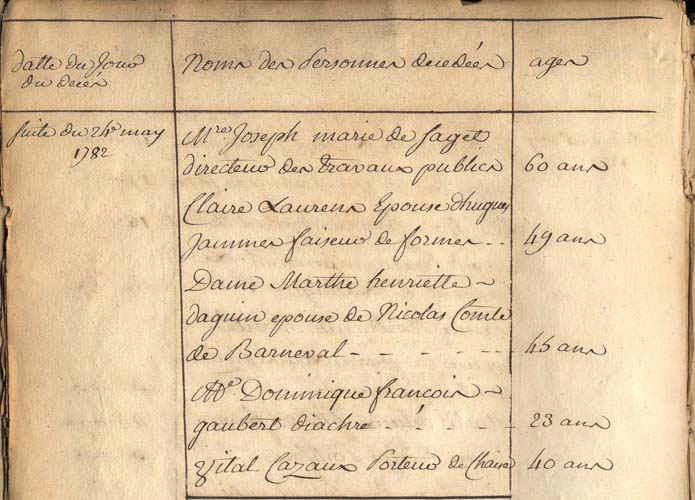 datte du Jour
du decés
Noms des Personnes decedées
ages
Suite du 24e may
1782
Mre Joseph marie de Saget
directeur des travaux publics
60 ans
Claire Laurens Epouse d'hugues
Jammes faiseur de formes - -
49 ans
Dame Marthe henriette ~
daguin epouse de Nicolas Comte
de Barneval - - - - - -
45 ans
Me Dominique francois ~
gaubert diacre - - - -
23 ans
Vital Cazaux Porteur de Chaise
40 ans